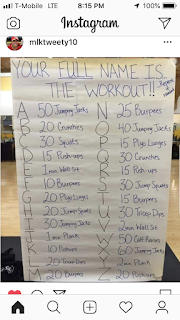 T-Mobile LTE 8:15 PM 100%
Instagram
mlktweety10
YOUR FULL NAME IS
THE WORKOUT!!
A 50 Jumping Jacks
B 20 Crunches
C 30 Squats
D 15 Push-ups
E 1 min Wall Sit
F 10 Burpees
G 20 Plyo Lunges
H 20 Jump Squats
I 30 Jumping Jacks
J 1 min Plank
K 10 Push-ups
L 20 Tricep Dips
M 20 Burpees
N 25 Burpees
O 40 Jumping Jacks
P 15 Plyo Lunges
Q 30 Crunches
R 15 Push-ups
S 30 Jump Squats
T 15 Burpees
U 30 Tricep Dips
V 2 min Wall Sit
W 50 Calf Raises
X 60 Jumping Jacks
Y 2 min Plank
Z 20 Push-ups